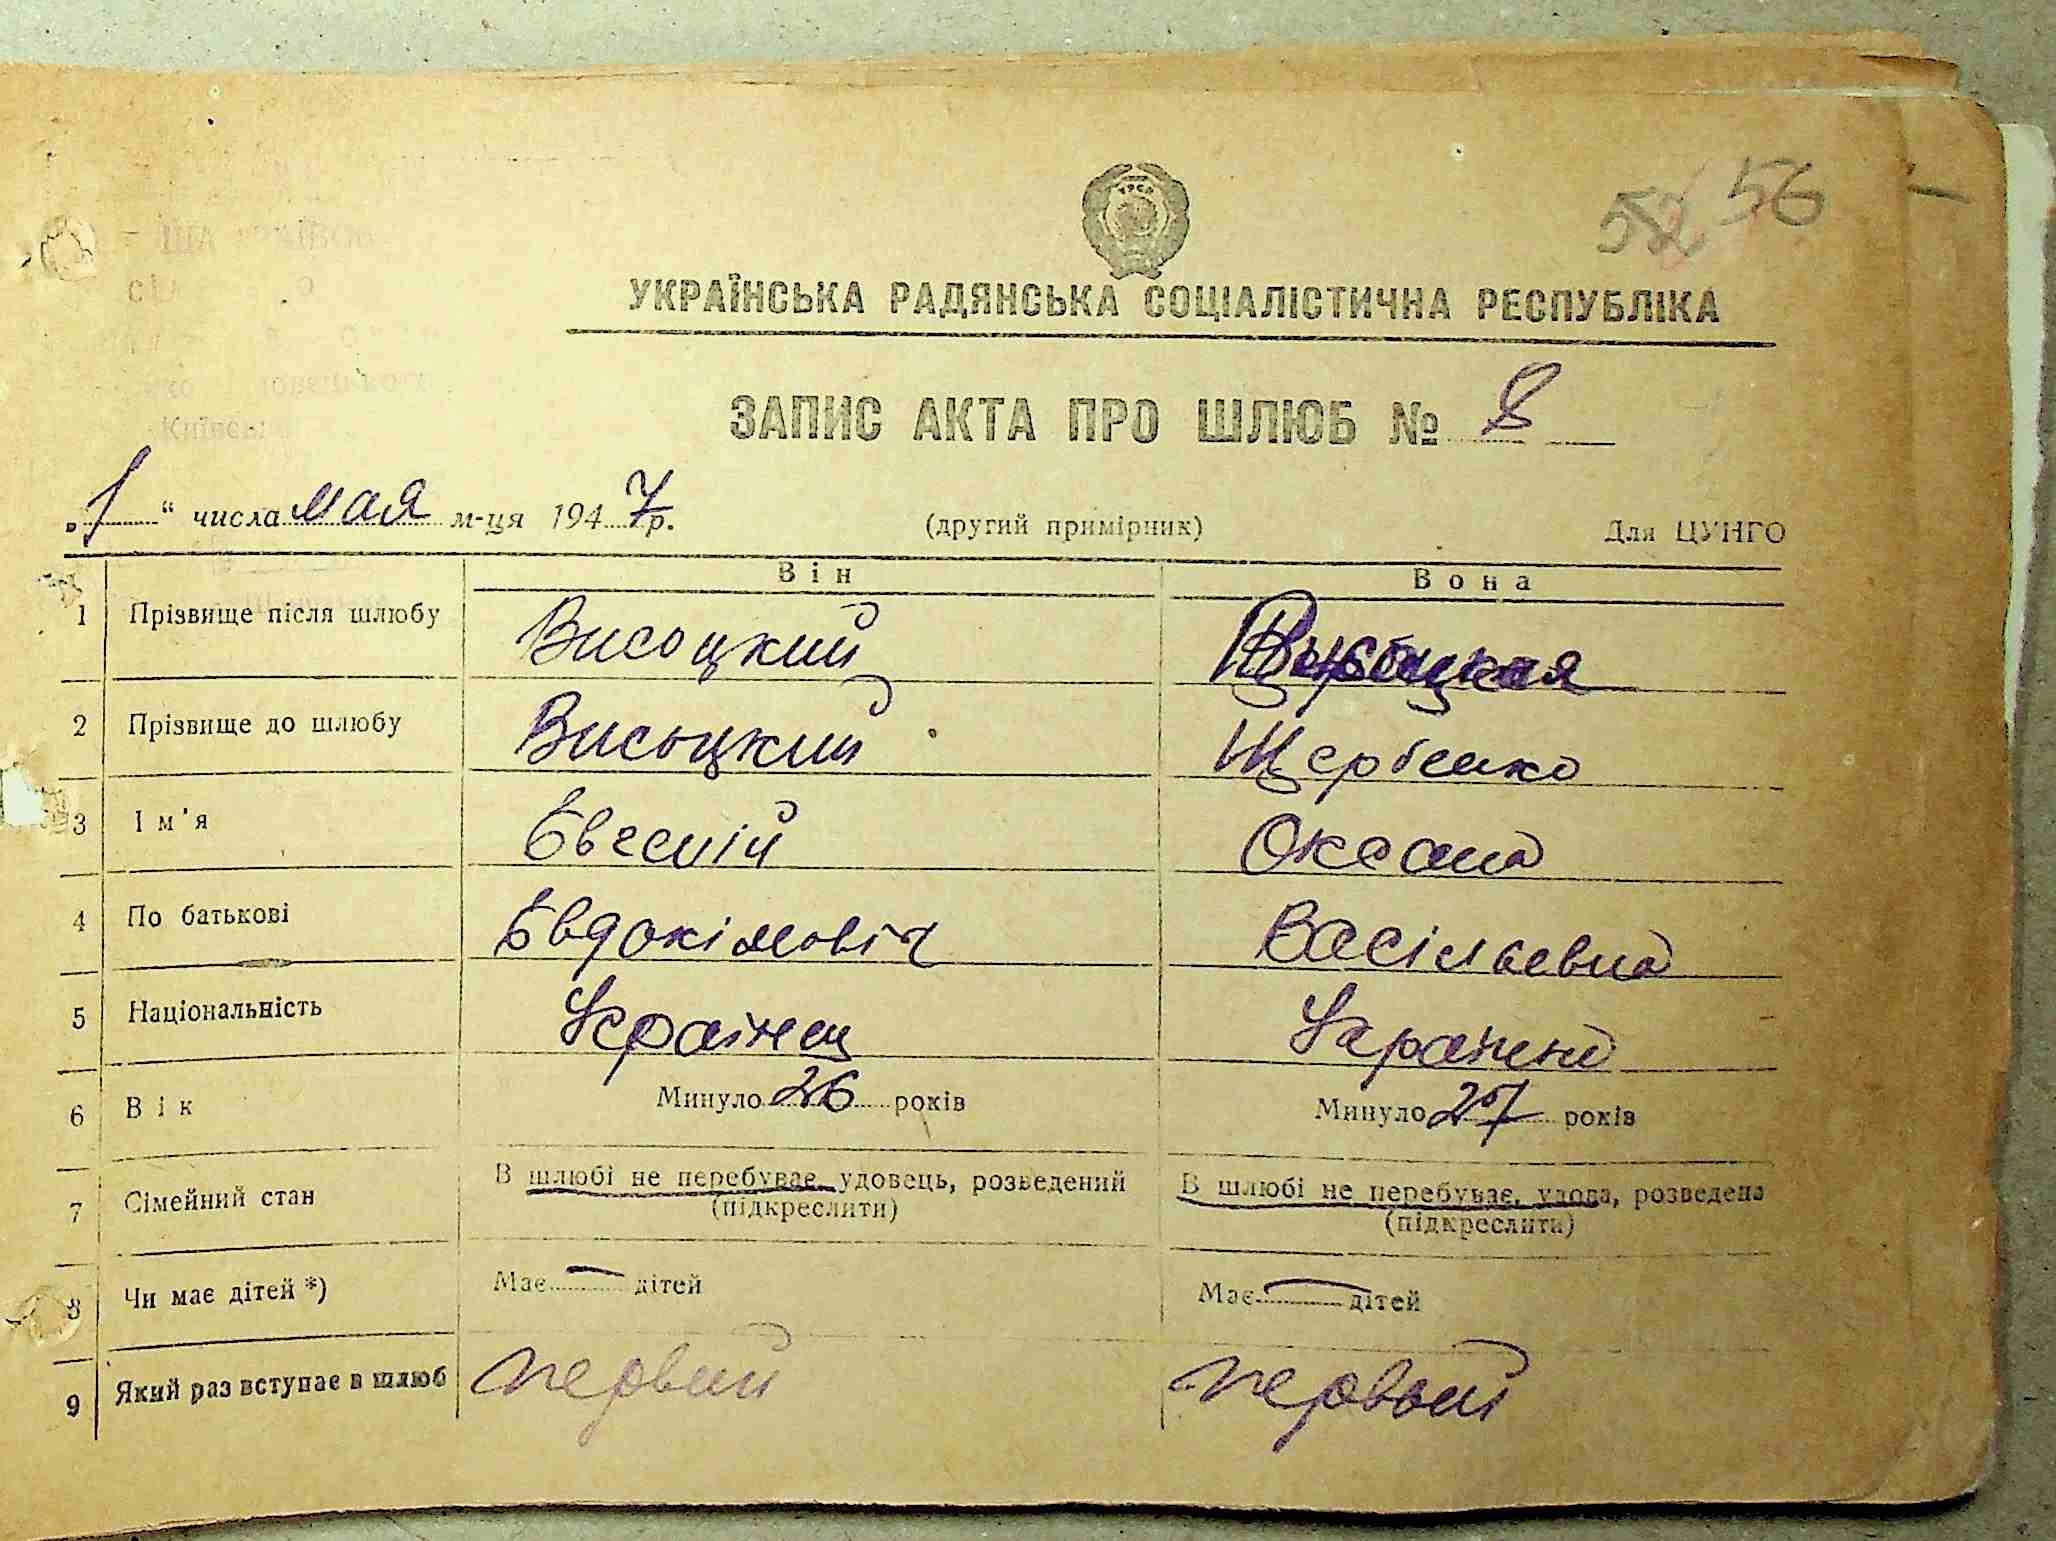 52 56
УРСР
УКРАЇНСЬКА РАДЯНСЬКА СОЦІАЛІСТИЧНА РЕСПУБЛІКА
ЗАПИС АКТА ПРО ШЛЮБ № 8
„1“ числа мая м-ця 1947 р. (другий примірник) Для ЦУНГО
Він Вона
1 Прізвище після шлюбу Висоцкий
2 Прізвище до шлюбу Висоцкий Щербенко
3 Ім'я Євгеній Оксана
4 По батькові Євдокімовіч Васільевна
5 Національність Українец Українка
6 Вік Минуло 26 років Минуло 27 років
7 Сімейний стан В шлюбі не перебуває, удовець, розведений (підкреслити) В шлюбі не перебуває, удова, розведена (підкреслити)
8 Чи має дітей *) Має — дітей Має — дітей
9 Який раз вступає в шлюб первий первый